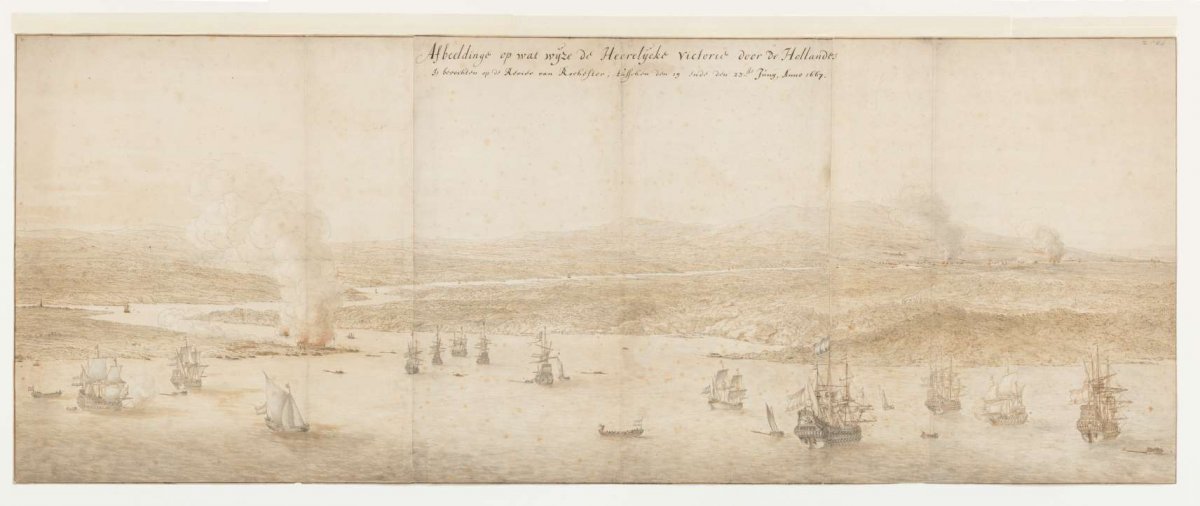 Afbeeldinge op wat wijze de Heerelijcke Victorie door de Hollandes
Is bevochten op de Revier van Rochester, tusschen den 19 ende den 23.ste Junij, Anno 1667.